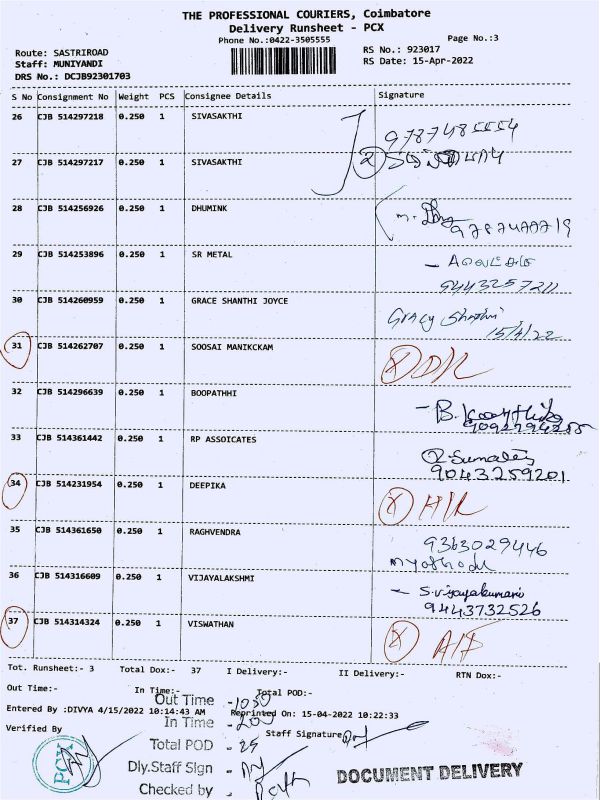 THE PROFESSIONAL COURIERS, Coimbatore
Delivery Runsheet - PCX
Phone No.:0422-3505555
Page No.:3
Route: SASTRIROAD
Staff: MUNIYANDI
DRS No.: DCJB92301703
RS No.: 923017
RS Date: 15-Apr-2022
S No Consignment No Weight PCS Consignee Details Signature
26 CJB 514297218 0.250 1 SIVASAKTHI 9787485554
27 CJB 514297217 0.250 1 SIVASAKTHI 2
28 CJB 514256926 0.250 1 DHUMINK
29 CJB 514253896 0.250 1 SR METAL
9443257211
30 CJB 514260959 0.250 1 GRACE SHANTHI JOYCE Gracy Shanthi
15/4/22
31 CJB 514262707 0.250 1 SOOSAI MANIKCKAM X D/L
32 CJB 514296639 0.250 1 BOOPATHHI
33 CJB 514361442 0.250 1 RP ASSOICATES
9043259201
34 CJB 514231954 0.250 1 DEEPIKA X
35 CJB 514361650 0.250 1 RAGHVENDRA 9363029446
36 CJB 514316609 0.250 1 VIJAYALAKSHMI - S.vijayakumari
9443732526
37 CJB 514314324 0.250 1 VISWATHAN X
Tot. Runsheet:- 3 Total Dox:- 37 I Delivery:- II Delivery:- RTN Dox:-
Out Time:- In Time:- Total POD:-
Entered By :DIVYA 4/15/2022 10:14:43 AM Reprinted On: 15-04-2022 10:22:33
Verified By
Staff Signature
PCX
Out Time
In Time
Total POD - 25
Dly.Staff Sign
Checked by
DOCUMENT DELIVERY